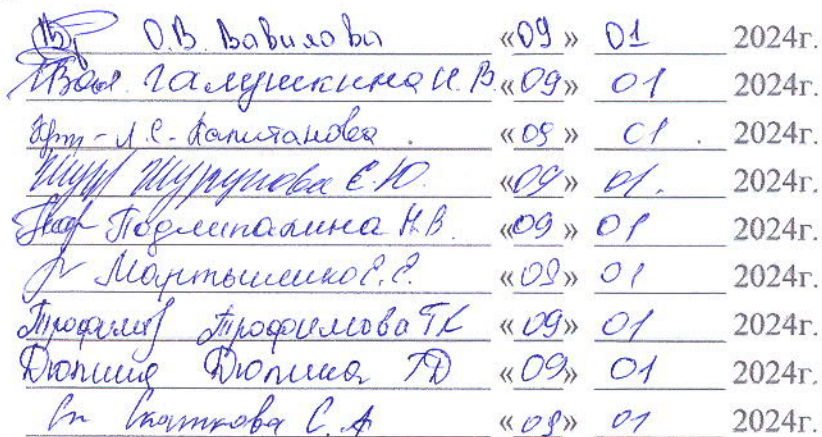 О.В. Вавилова «09» 01 2024г.
Галушкина И.В. «09» 01 2024г.
Л.С. Капитанова «09» 01 2024г.
Шурупова Е.Ю. «09» 01. 2024г.
Подлипалина Н.В. «09» 01 2024г.
Мартышенко Е.Е. «09» 01 2024г.
Трофимова ТК «09» 01 2024г.
Дюпина Дюпина ТД «09» 01 2024г.
Скаткова С.А «09» 01 2024г.